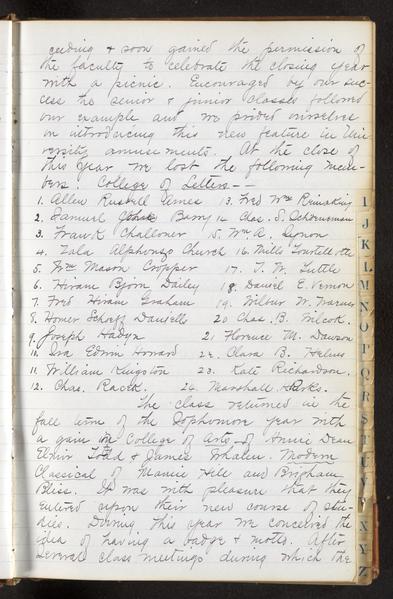 ceeding & soon gained the permission of
the faculty to celebrate the closing year
with a picnic. Encouraged by our suc-
cess the senior & junior classes followed
our example and we prided ourselves
on introducing this new feature in Uni-
versity amusements. At the close of
this year we lost the following mem-
bers: College of Letters --
1. Allen Russell 13. Fred Wm
2. Samuel Barry 14. Chas. S.
3. Frank Challoner 15. Wm. A.
4. Zala Alphonzo Church 16. Mills Tourtellotte
5. Wm Mason Cropper 17. T. W. Tuttle
6. Hiram Bjorn Dailey 18. Daniel E. Vernon
7. Fred Hiram Graham 19. Wilbur W. Warner
8. Homer Daniells 20 Chas. B. Wilcok.
9. Joseph Hadyn 21 Florence M. Dawson
10. Ira Edwin Howard 22. Clara B.
11. William Kingston 23. Kate Richardson.
12. Chas. Racek. 24. Marshall Parks.
The class returned in the
fall term of the Sophomore year with
a gain in College of Arts of Annie Dean
Todd & James Whalen. Modern
Classical of Mamie Hill and Brigham
Bliss. It was with pleasure that they
entered upon their new course of stu-
dies. During this year we conceived the
idea of having a badge & motto. After
several class meetings during which the
I
J
K
L
M
N
O
P
Q
R
S
T
U
V
X
Y
Z